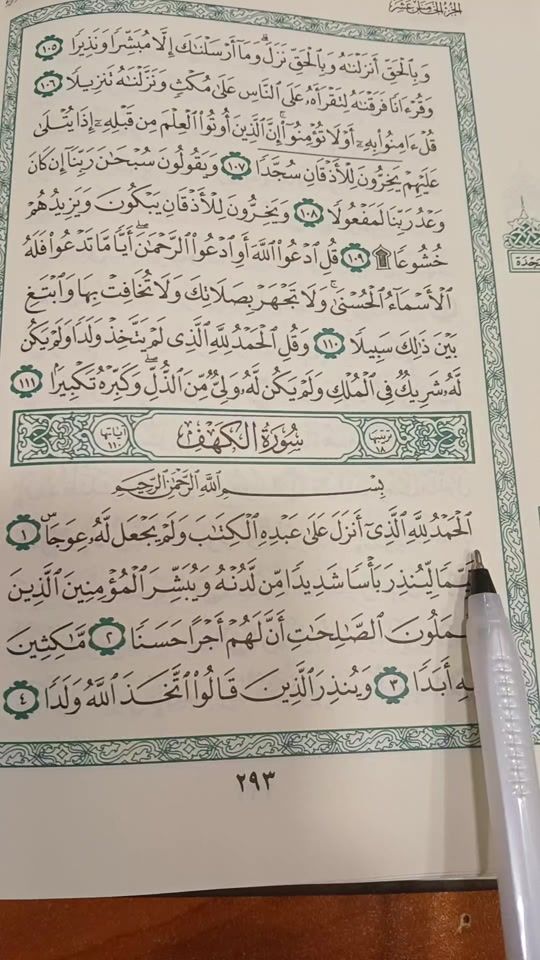 الجزء الخامس عشر
وَبِالْحَقِّ أَنزَلْنَاهُ وَبِالْحَقِّ نَزَلَ ۗ وَمَا أَرْسَلْنَاكَ إِلَّا مُبَشِّرًا وَنَذِيرًا ١٠٥
وَقُرْءَانًا فَرَقْنَاهُ لِتَقْرَأَهُ عَلَى النَّاسِ عَلَىٰ مُكْثٍ وَنَزَّلْنَاهُ تَنزِيلًا ١٠٦
قُلْ ءَامِنُوا بِهِ أَوْ لَا تُؤْمِنُوا ۚ إِنَّ الَّذِينَ أُوتُوا الْعِلْمَ مِن قَبْلِهِ إِذَا يُتْلَىٰ
عَلَيْهِمْ يَخِرُّونَ لِلْأَذْقَانِ سُجَّدًا ١٠٧ وَيَقُولُونَ سُبْحَانَ رَبِّنَا إِن كَانَ
وَعْدُ رَبِّنَا لَمَفْعُولًا ١٠٨ وَيَخِرُّونَ لِلْأَذْقَانِ يَبْكُونَ وَيَزِيدُهُمْ
خُشُوعًا ۩ ١٠٩ قُلِ ادْعُوا اللَّهَ أَوِ ادْعُوا الرَّحْمَٰنَ ۖ أَيًّا مَّا تَدْعُوا فَلَهُ
الْأَسْمَاءُ الْحُسْنَىٰ ۚ وَلَا تَجْهَرْ بِصَلَاتِكَ وَلَا تُخَافِتْ بِهَا وَابْتَغِ
بَيْنَ ذَٰلِكَ سَبِيلًا ١١٠ وَقُلِ الْحَمْدُ لِلَّهِ الَّذِي لَمْ يَتَّخِذْ وَلَدًا وَلَمْ يَكُن
لَّهُ شَرِيكٌ فِي الْمُلْكِ وَلَمْ يَكُن لَّهُ وَلِيٌّ مِّنَ الذُّلِّ ۖ وَكَبِّرْهُ تَكْبِيرًا ١١١
ترتيبها ١٨ سُورَةُ الْكَهْفِ آياتها ١١٠
بِسْمِ اللَّهِ الرَّحْمَٰنِ الرَّحِيمِ
الْحَمْدُ لِلَّهِ الَّذِي أَنزَلَ عَلَىٰ عَبْدِهِ الْكِتَابَ وَلَمْ يَجْعَل لَّهُ عِوَجًا ۜ ١
لِّيُنذِرَ بَأْسًا شَدِيدًا مِّن لَّدُنْهُ وَيُبَشِّرَ الْمُؤْمِنِينَ الَّذِينَ
الصَّالِحَاتِ أَنَّ لَهُمْ أَجْرًا حَسَنًا ٢ مَّاكِثِينَ
أَبَدًا ٣ وَيُنذِرَ الَّذِينَ قَالُوا اتَّخَذَ اللَّهُ وَلَدًا ٤
٢٩٣